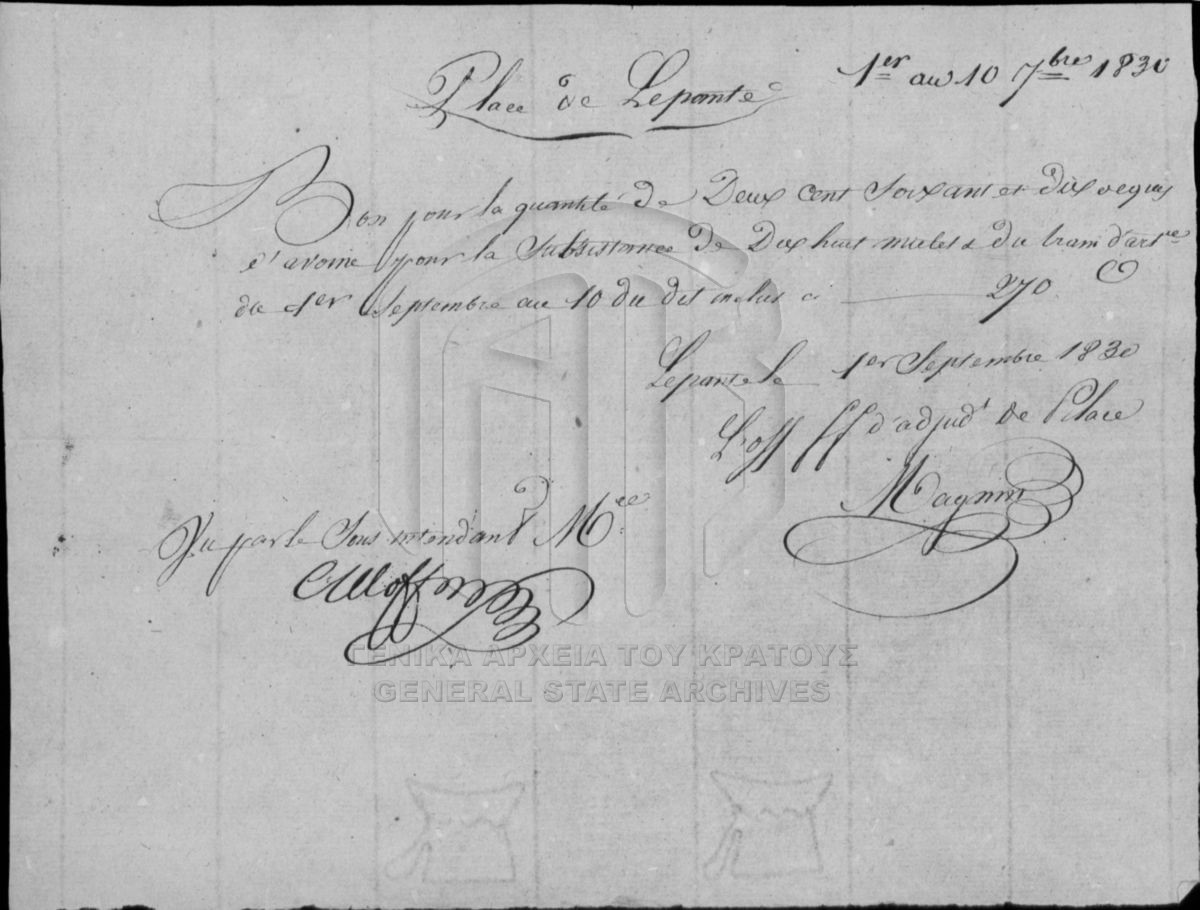 Place de Lepante
1er au 10 7bre 1830
Bon pour la quantité de Deux cent Soixant et dix
d'avoine pour la Subsistance de Dix huit mulets du train d'artrie
du 1er Septembre au 10 du dit inclus ci 270
Lepante le 1er Septembre 1830
L'off ff d'adjudt de Place
Magnin
Vu par le Sous intendant Mre
ΓΕΝΙΚΑ ΑΡΧΕΙΑ ΤΟΥ ΚΡΑΤΟΥΣ
GENERAL STATE ARCHIVES